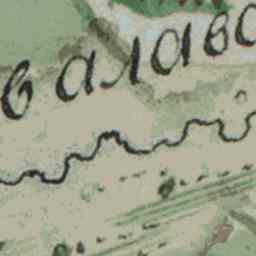 валаво